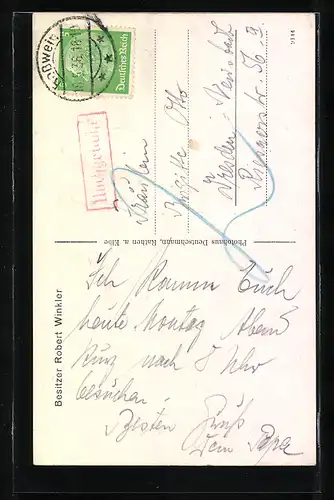 Roßwein
Deutsches Reich
Nachgebühr
Fräulein
Brigitte Otto
Dresden-Neustadt
9184
Photohaus Deutschmann, Rathen a. Elbe
Besitzer Robert Winkler
Ich komm Euch
heute Montag Abend
kurz nach 8 Uhr
besuchen.
Besten Gruß
Dein Papa